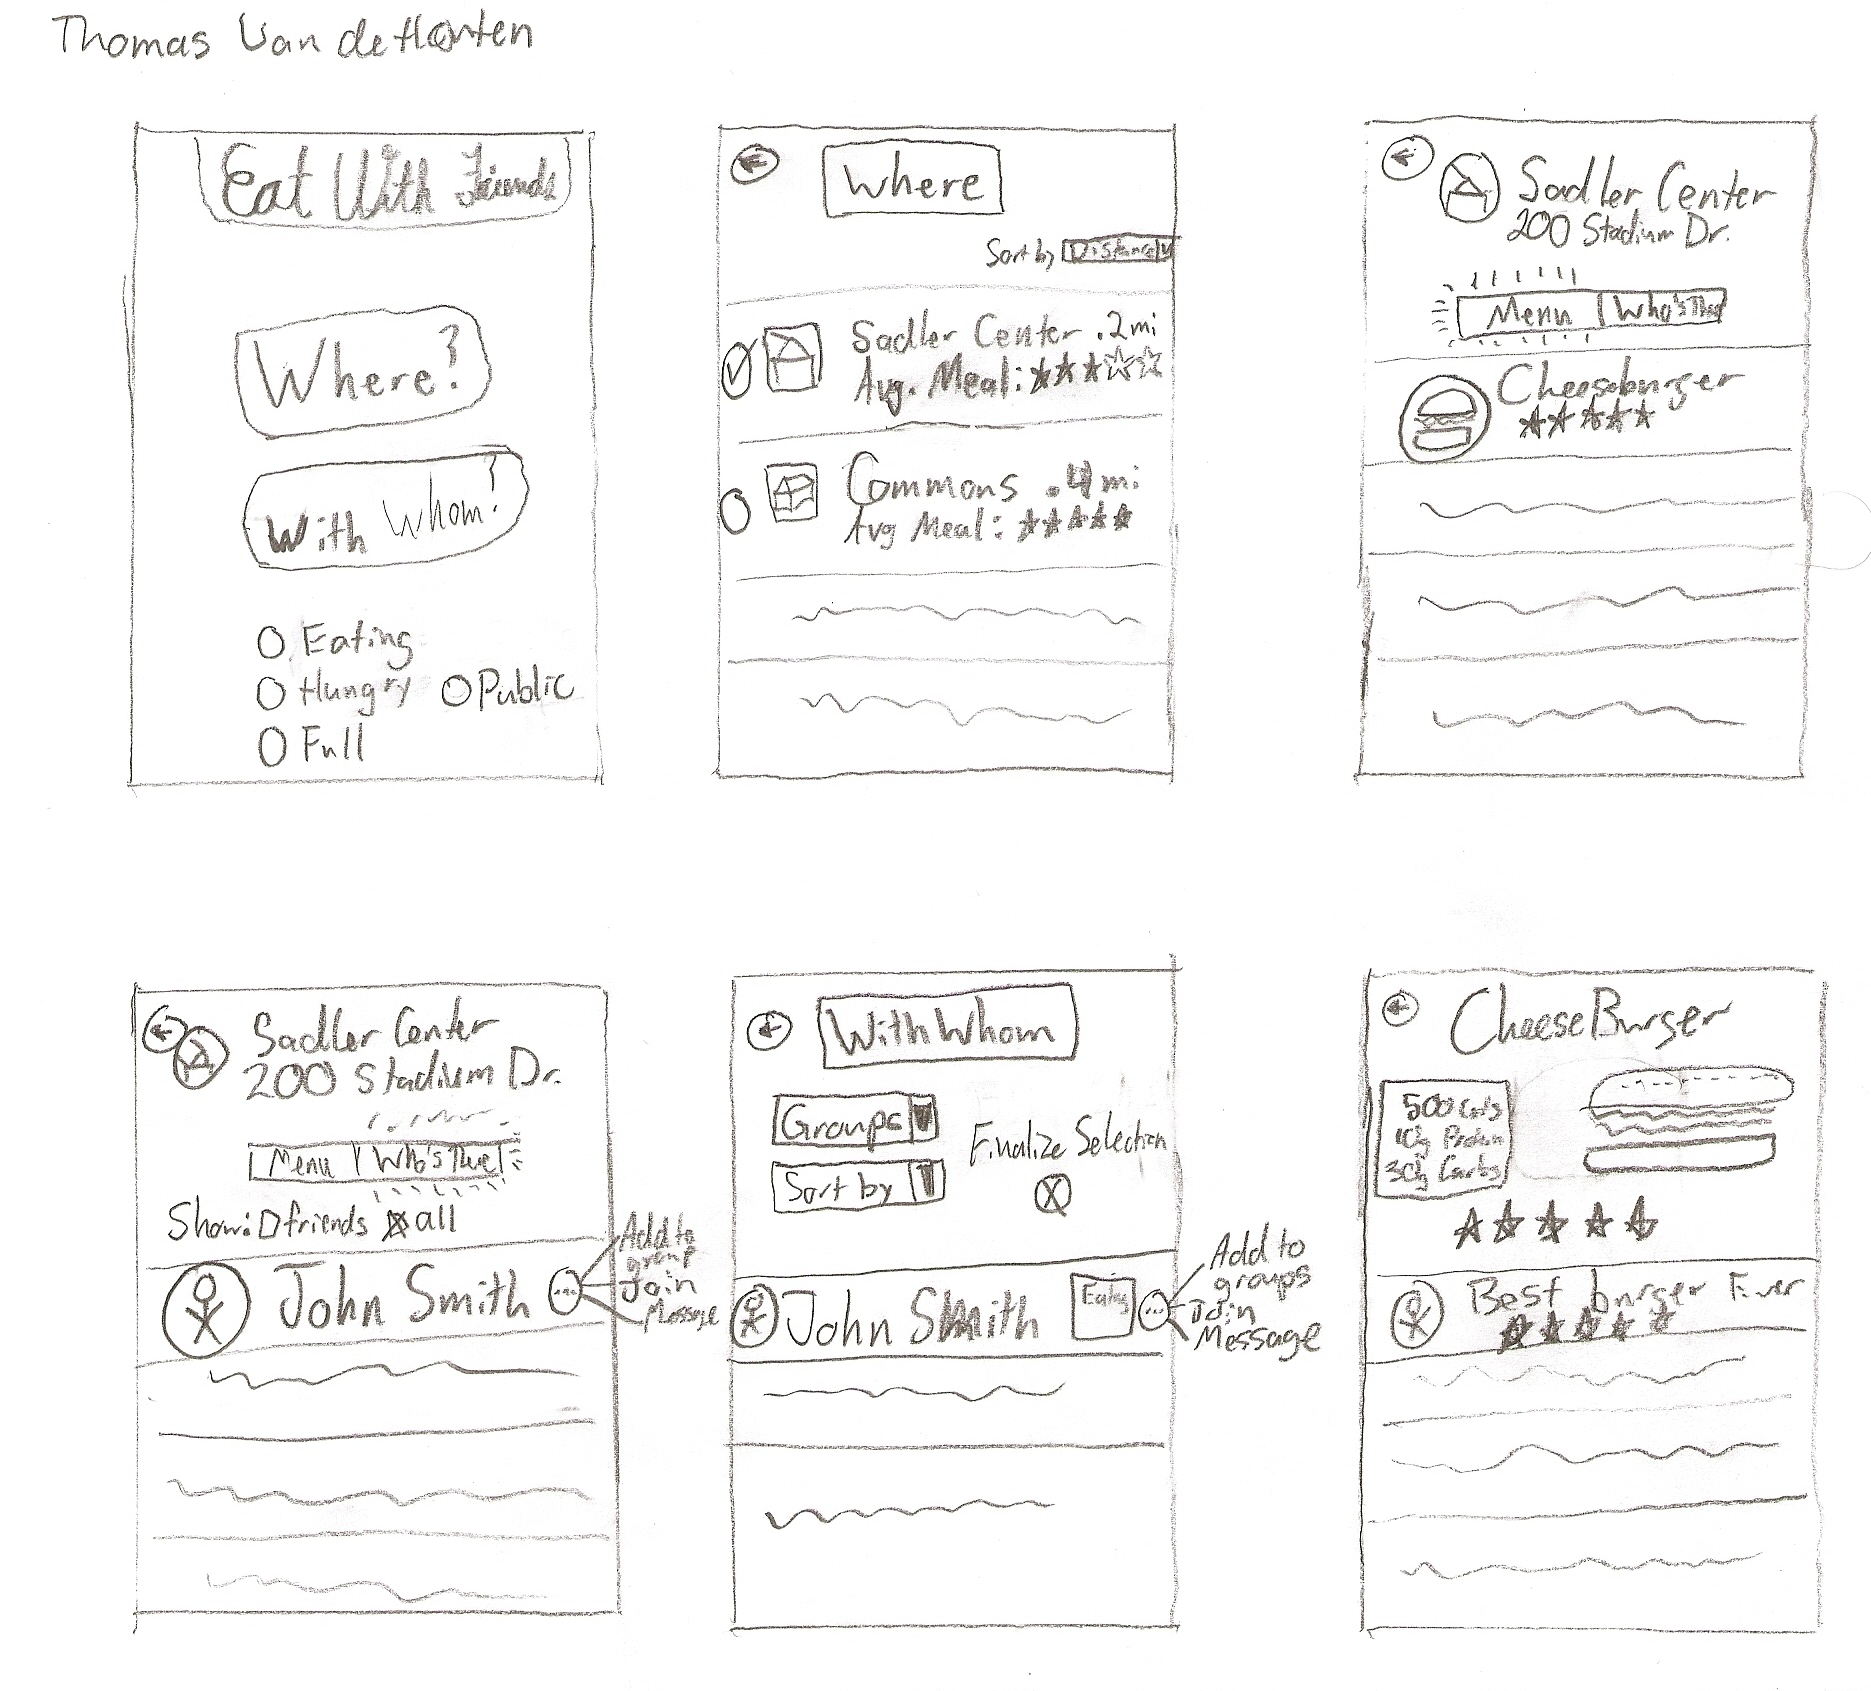 Thomas Van de Horten
Eat With Friends
Where?
With Whom?
Eating
Hungry
Public
Full
Where
Sort by Distance
Sadler Center .2mi
Avg. Meal:
Commons .4mi
Avg Meal:
Sadler Center
200 Stadium Dr.
Menu Who's
Cheeseburger
Sadler Center
200 Stadium Dr.
Menu Who's There
Show: friends all
John Smith
...
Add to
group
Join
Message
With Whom
Groups
Sort by
Finalize Selection
X
John Smith
Eating
...
Add to
groups
Join
Message
CheeseBurger
500 Cals
10g Protein
30g Carbs
Best burger Ever